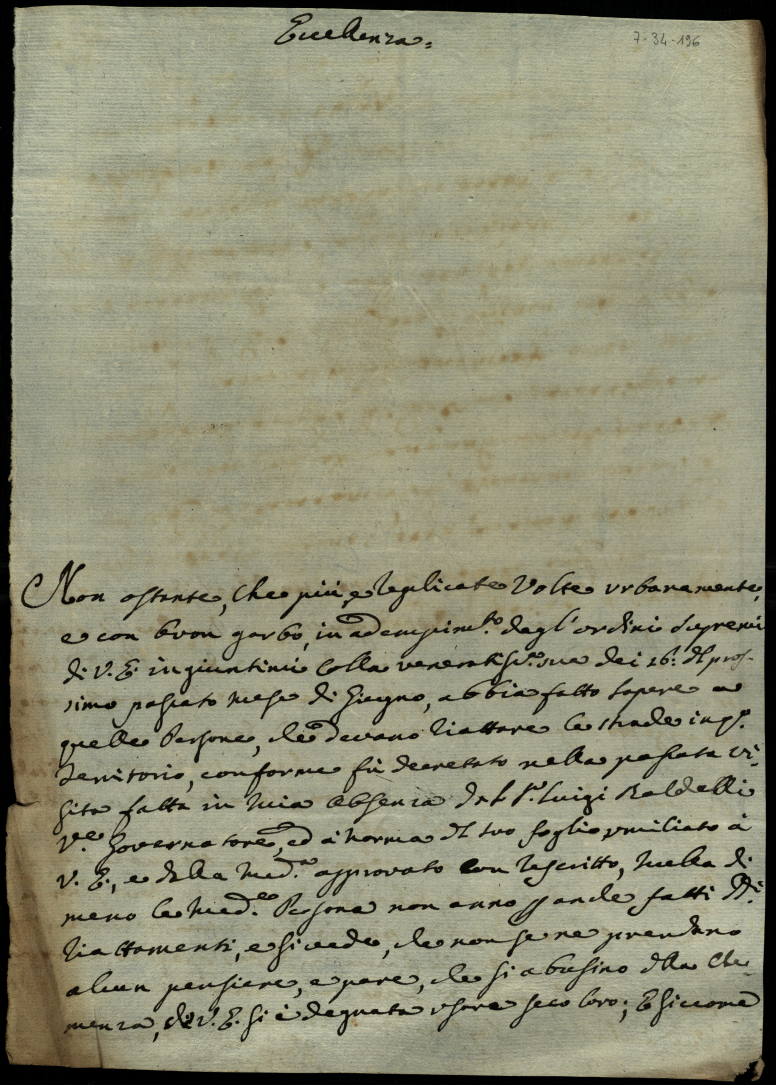 Eccellenza =
7-34-196
Non ostante, che più, e replicate volte urbanamente,
e con buon garbo, in adempim.to degl'ordini supremi
di V. E. ingiuntimi colla veneratis.ma sua dei 16: del pros-
simo passato mese di Giugno, abbia fatto sapere a
quelle Persone, che devano riattare le strade in q.to
Territorio, conforme fù decretato nella passata vi-
sita fatta in mia absenza dal Sr. Luigi Baldelli
V.e Governatore, ed à norma del suo foglio umiliato à
V. E., e dalla med.a approvato con rescritto, nulla di
meno le med.e Persone non anno per anche fatti d.i
riattamenti, e si vede, che non se ne prendano
alcun pensiere, e pare, che si abusino della Cle-
menza, che V. E. si è degnata usare seco loro; E siccome